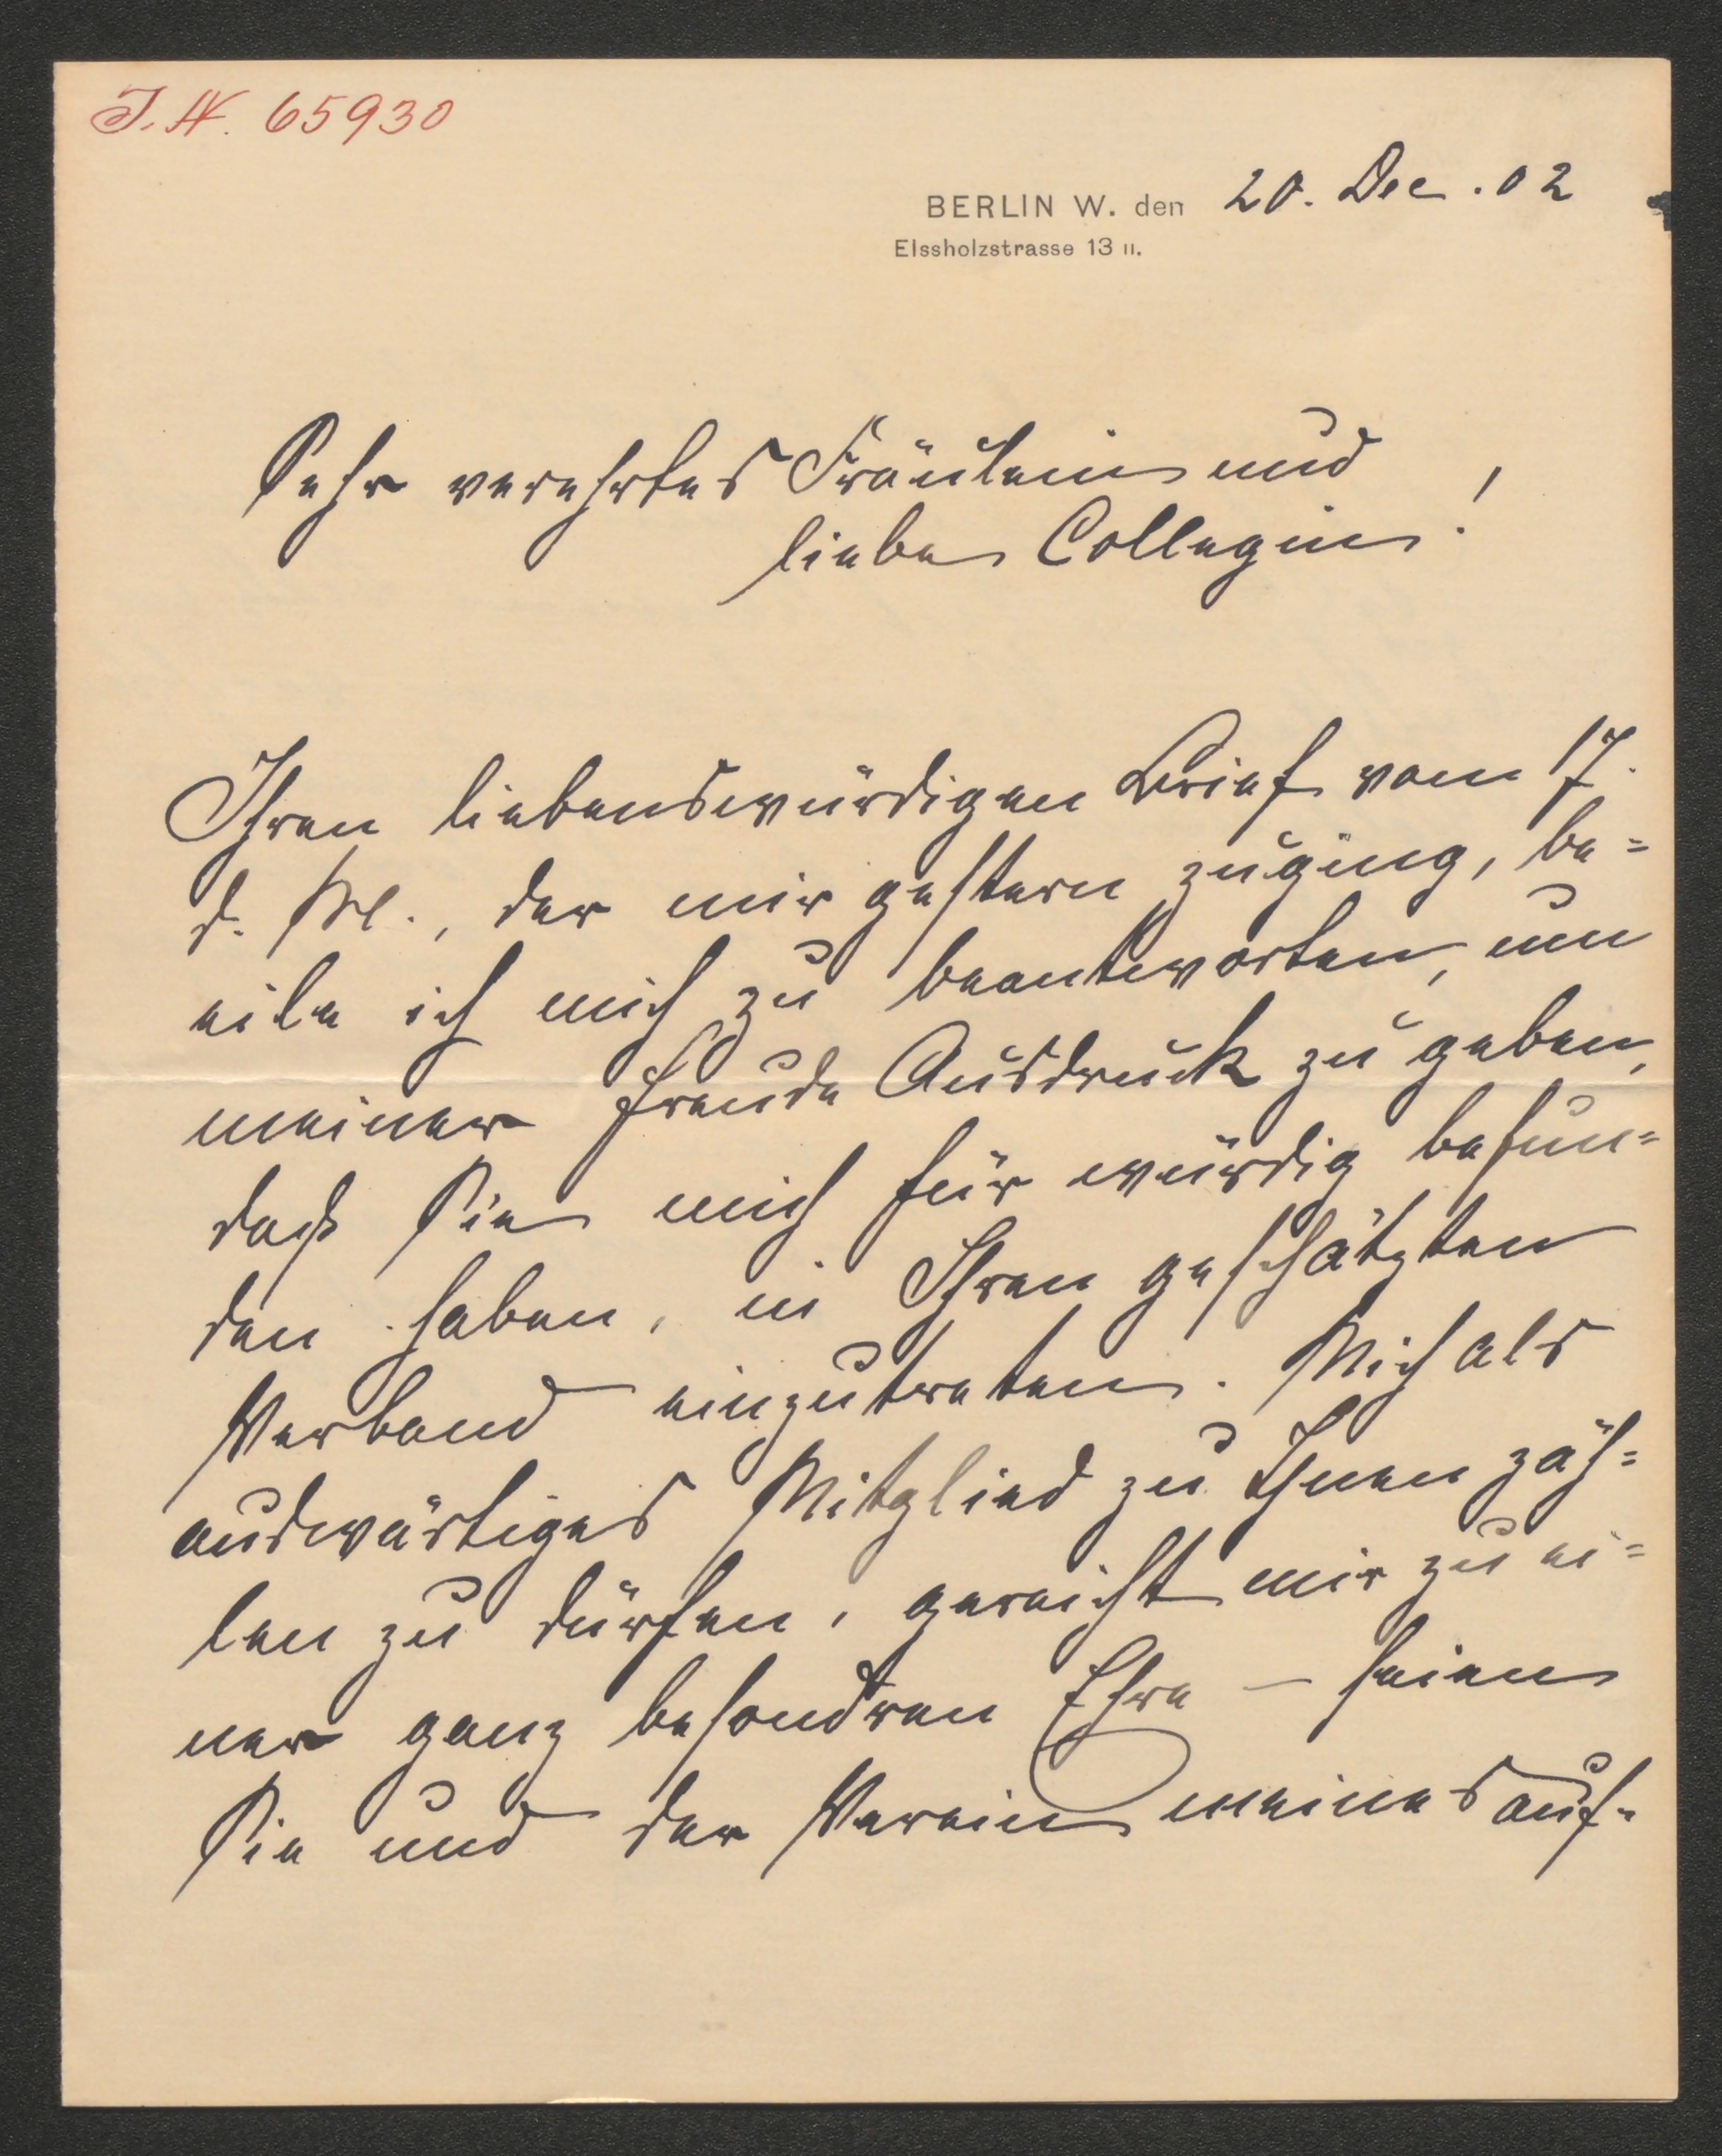 J. N. 65930
BERLIN W. den 20. Dec. 02
Elssholzstrasse 13 II.
Sehr verehrtes Fräulein und
liebe Collegin!
Ihren liebenswürdigen Brief vom 17.
d. M., der mir gestern zuging, be=
eile ich mich zu beantworten, um
meiner Freude Ausdruck zu geben,
daß Sie mich für würdig befun=
den haben, in Ihren geschätzten
Verband einzutreten. Mich als
auswärtiges Mitglied zu Ihnen zäh=
len zu dürfen, gereicht mir zu ei=
ner ganz besondren Ehre – seien
Sie und der Verein meines auf=